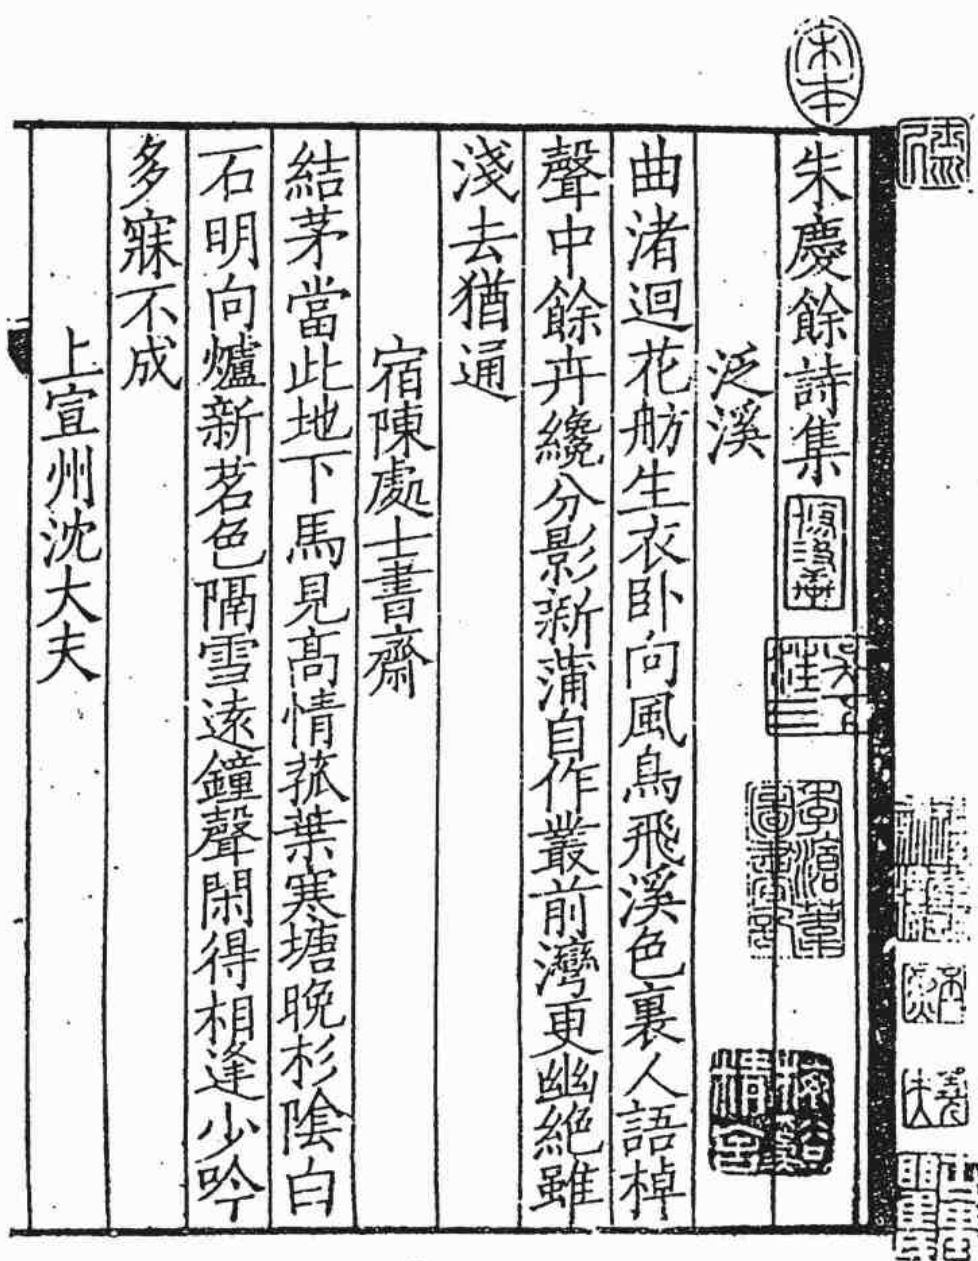 宋本
朱慶餘詩集
泛溪
曲渚迴花舫生衣卧向風鳥飛溪色裏人語棹
聲中餘卉纔分影新蒲自作叢前灣更幽絕雖
淺去猶通
宿陳處士書齋
結茅當此地下馬見髙情菰葉寒塘晚杉陰白
石明向爐新茗色隔雪遠鐘聲閑得相逢少吟
多寐不成
上宣州沈大夫
季滄葦圖書記
梅谿精舍